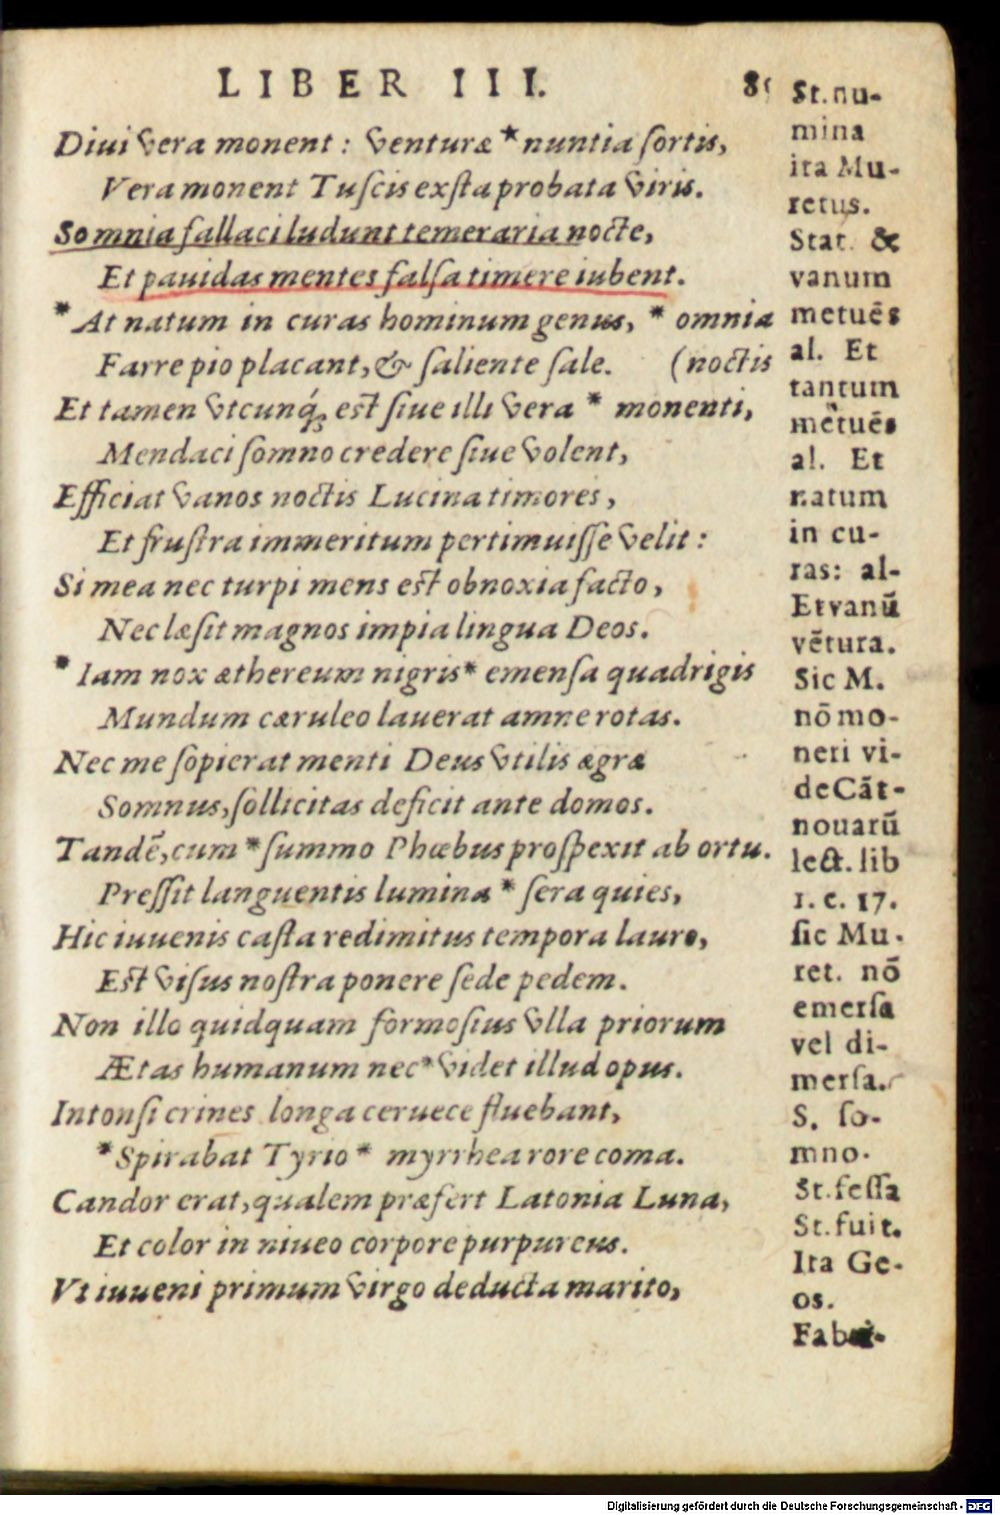 LIBER III.
Diui vera monent : venturæ * nuntia ſortis,
Vera monent Tuſcis exſta probata viris.
Somnia fallaci ludunt temeraria nocte,
Et pauidas mentes falſa timere iubent.
* At natum in curas hominum genus, * omnia
Farre pio placant, & ſaliente ſale. (noctis
Et tamen vtcunq́; eſt ſiue illi vera * monenti,
Mendaci ſomno credere ſiue volent,
Efficiat vanos noctis Lucina timores,
Et fruſtra immeritum pertimuiſſe velit :
Si mea nec turpi mens eſt obnoxia facto,
Nec læſit magnos impia lingua Deos.
* Iam nox æthereum nigris * emenſa quadrigis
Mundum cæruleo lauerat amne rotas.
Nec me ſopierat menti Deus vtilis ægræ
Somnus, ſollicitas deficit ante domos.
Tandē, cum * ſummo Phœbus proſpexit ab ortu.
Preſſit languentis lumina * ſera quies,
Hic iuuenis caſta redimitus tempora lauro,
Eſt viſus noſtra ponere ſede pedem.
Non illo quidquam formoſius vlla priorum
Ætas humanum nec * videt illud opus.
Intonſi crines longa ceruece fluebant,
* Spirabat Tyrio * myrrhea rore coma.
Candor erat, qualem præfert Latonia Luna,
Et color in niueo corpore purpureus.
Vt iuueni primum virgo deducta marito,
St. nu-
mina
ita Mu-
retus.
Stat. &
vanum
metuēs
al. Et
tantum
metuēs
al. Et
natum
in cu-
ras: al-
Et vanū
vētura.
Sic M.
nō mo-
neri vi-
de Cāt-
nouarū
lect. lib
1. c. 17.
ſic Mu-
ret. nō
emerſa
vel di-
merſa.
S. ſo-
mno.
St. feſſa
St. fuit.
Ita Ge-
os.
Digitalisierung gefördert durch die Deutsche Forschungsgemeinschaft - DFG